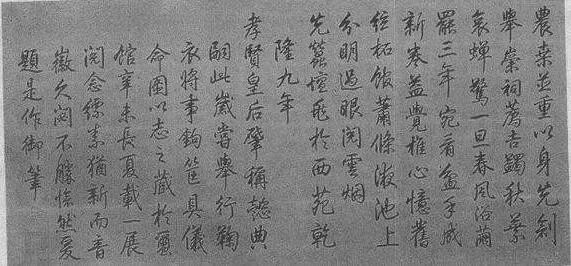 農桑並重以身先創
舉崇祠薦吉蠲秋葉
哀蟬驚一旦春風浴繭
罷三年宛看盆手成
新卷益覺椎心憶舊
絃柘館蕭條液池上
分明過眼閱雲烟
先蠶壇於西苑乾
隆九年
孝賢皇后肇稱懿典
嗣此歲嘗舉行鞠
衣將事鉤筐具儀
命圖以志之藏於蠶
館辛未長夏載一展
閱念縹素猶新而音
徽久閟不勝悵然爰
題是作御筆